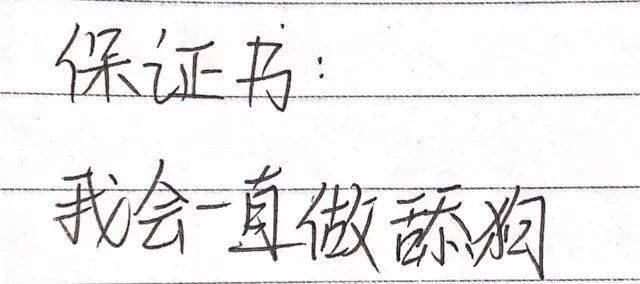 保证书：
我会一直做舔狗